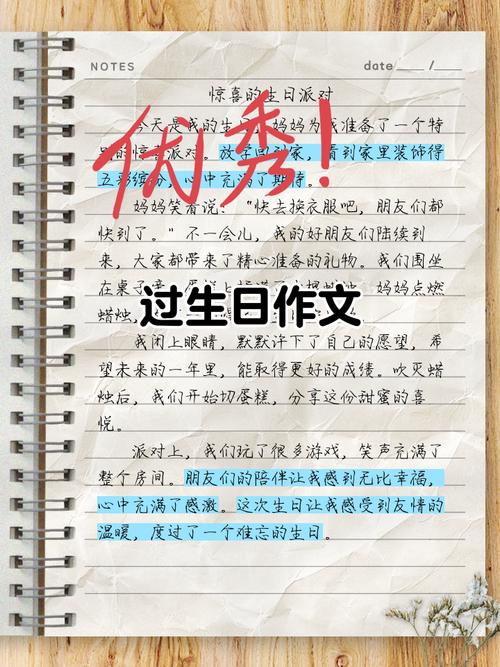 NOTES
date / 
惊喜的生日派对
今天是我的生日，妈妈为我准备了一个特
别的惊喜派对。放学回到家，看到家里装饰得
五彩缤纷，心中充满了期待。
优秀！
妈妈笑着说："快去换衣服吧，朋友们都
快到了。"不一会儿，我的好朋友们陆续到
来，大家都带来了精心准备的礼物。我们围坐
在桌子旁，蛋糕上插满了 妈妈点燃
蜡烛，
过生日作文
我闭上眼睛，默默许下了自己的愿望，希
望未来的一年里，能取得更好的成绩。吹灭蜡
烛后，我们开始切蛋糕，分享这份甜蜜的喜
悦。
派对上，我们玩了很多游戏，笑声充满了
整个房间。朋友们的陪伴让我感到无比幸福，
心中充满了感激。这次生日让我感受到友情的
温暖，度过了一个难忘的生日。